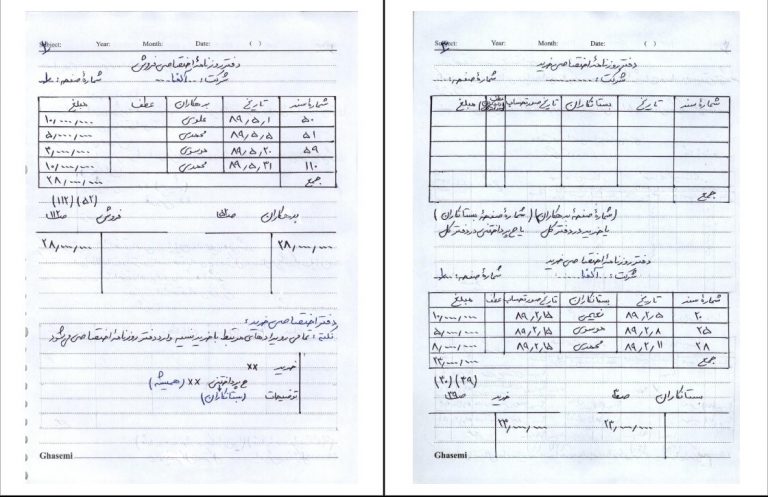 Subject: Year: Month: Date: ( )
دفتر روزنامه اختصاصی فروش
شرکت: .. آلفا .. شماره صفحه:
شماره سند تاریخ بدهکاران عطف مبلغ
۵۰ ۸۹٫۵٫۱ علوی ۱۰٫۰۰۰٫۰۰۰
۵۱ ۸۹٫۵٫۵ محمدی ۵٫۰۰۰٫۰۰۰
۵۹ ۸۹٫۵٫۲۰ موسوی ۳٫۰۰۰٫۰۰۰
۱۱۰ ۸۹٫۵٫۳۱ محمدی ۱۰٫۰۰۰٫۰۰۰
جمع ۲۸٫۰۰۰٫۰۰۰
(۵۲) (۱۱۲)
بدهکاران ص۵۲ فروش ص۱۱۲
۲۸٫۰۰۰٫۰۰۰ ۲۸٫۰۰۰٫۰۰۰
دفتر اختصاصی خرید:
نکته: تمامی رویدادهای مرتبط با خرید نسیه وارد دفتر روزنامه اختصاصی می‌شود
خرید ××
ح پرداختنی ×× (همیشه)
توضیحات (بستانکاران)
Ghasemi
Subject: Year: Month: Date: ( )
دفتر روزنامه اختصاصی خرید
شرکت: .......... شماره صفحه:
شماره سند تاریخ بستانکاران تاریخ صورتحساب عطف مبلغ
جمع
(شماره صفحه بدهکاران) (شماره صفحه بستانکاران)
یا خرید در دفتر کل یا ح پرداختنی در دفتر کل
دفتر روزنامه اختصاصی خرید
شرکت: .. آلفا .. شماره صفحه:
شماره سند تاریخ بستانکاران تاریخ صورتحساب عطف مبلغ
۲۰ ۸۹٫۲٫۵ نعیمی ۸۹٫۲٫۱۵ ۱۰٫۰۰۰٫۰۰۰
۲۵ ۸۹٫۲٫۸ موسوی ۸۹٫۲٫۱۵ ۵٫۰۰۰٫۰۰۰
۲۸ ۸۹٫۲٫۱۱ محمدی ۸۹٫۲٫۱۵ ۸٫۰۰۰٫۰۰۰
جمع ۲۳٫۰۰۰٫۰۰۰
(۳۹) (۳۰)
بستانکاران خرید ص۳۹
۲۳٫۰۰۰٫۰۰۰ ۲۳٫۰۰۰٫۰۰۰
Ghasemi